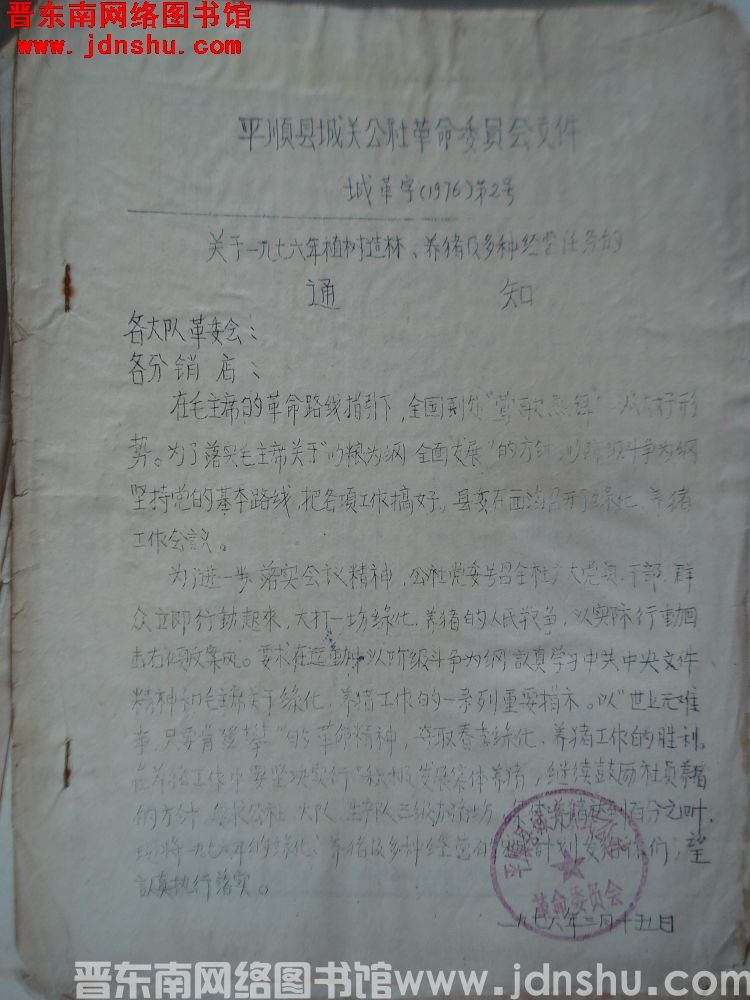 晋东南网络图书馆
www.jdnshu.com
平順县城关公社革命委員会文件
城革字(1976)第2号
关于一九七六年植树造林、养猪及多种经营任务的
通 知
各大队革委会:
各分销店:
在毛主席的革命路线指引下,全国到处"莺歌燕舞" 大好形
势。为了落实毛主席关于"以粮为纲 全面发展"的方针,以阶级斗争为纲
坚持党的基本路线,把各項工作搞好,县委在 召开了绿化、养猪
工作会议。
为了进一步落实会议精神,公社党委号召全社广大党员、干部、群
众立即行動起來,大打一场绿化、养猪的人民战争,以实际行動回
击右倾翻案风。要求在运動中以阶级斗争为纲 認真学习中共中央文件
精神和毛主席关于绿化、养猪工作的一系列重要指示。以"世上无难
事,只要肯登攀"的革命精神,夺取春季绿化、养猪工作的胜利。
在养猪工作中要坚决实行"积极发展集体养猪,继续鼓励社員养猪
的方针 公社 大队 生产队三级 集体养猪达到百分之
现将一九七六年的绿化、养猪及多种经营的 計划发给你们,望
認真执行落实。
革命委员会
一九七六年三月十五日
晋东南网络图书馆 www.jdnshu.com